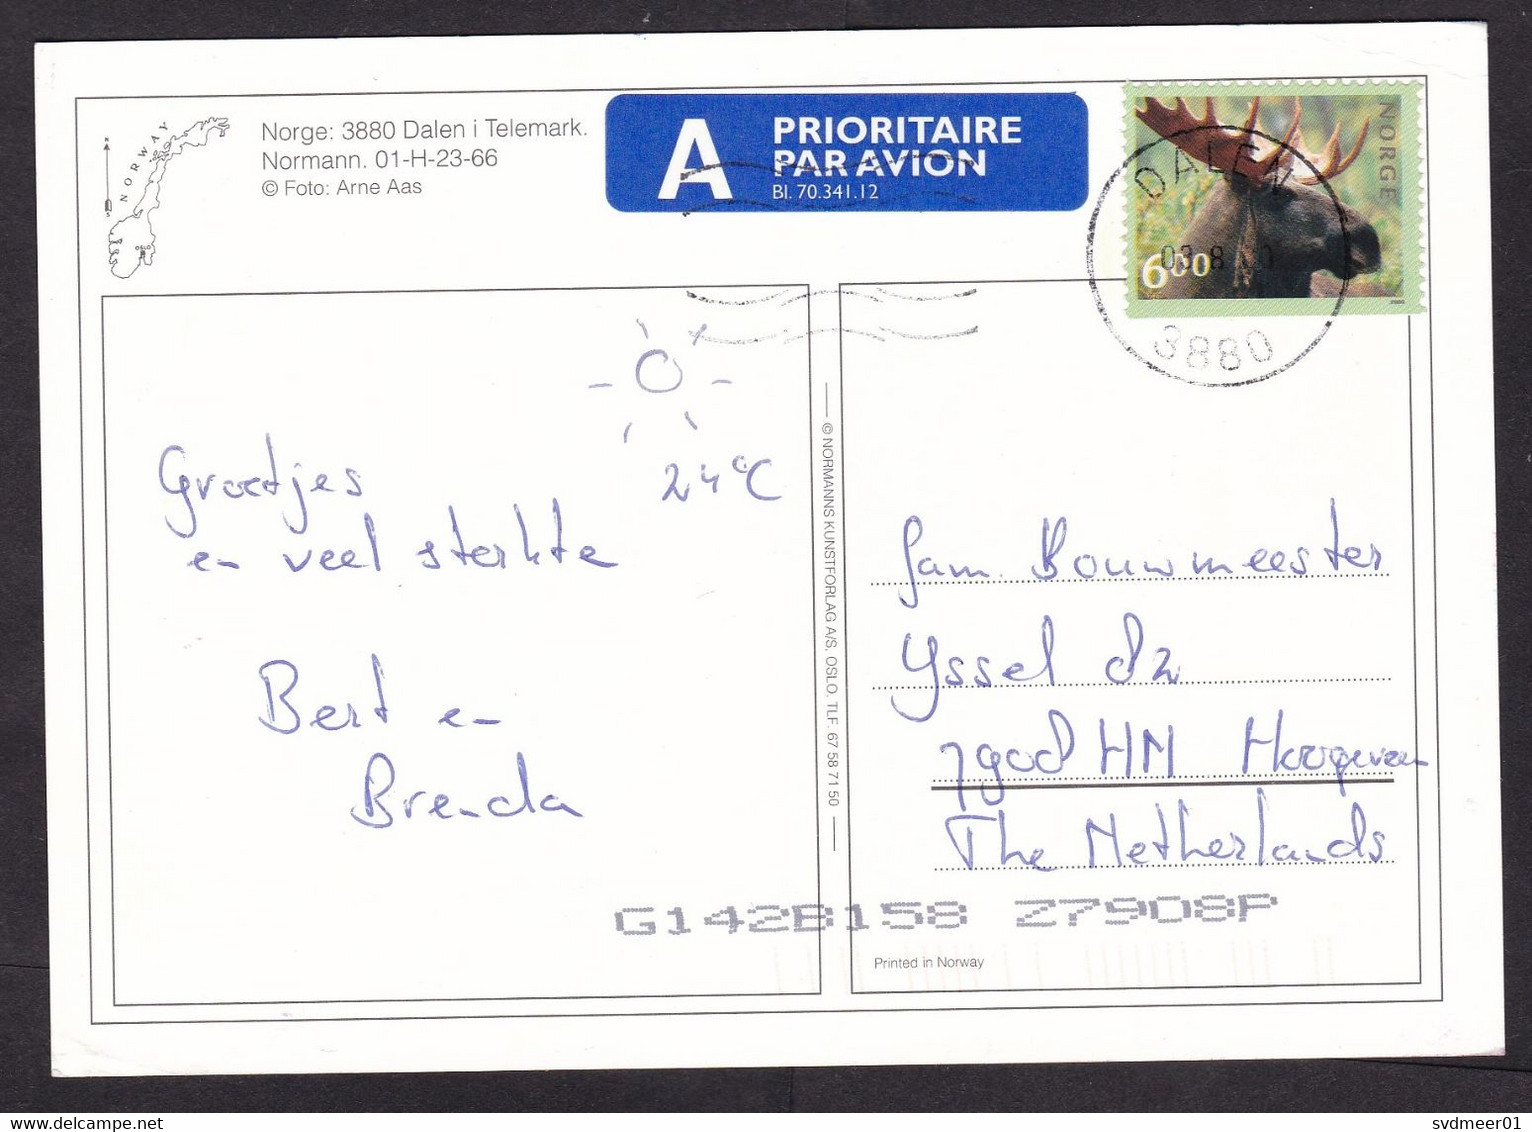 Norge: 3880 Dalen i Telemark.
Normann. 01-H-23-66
© Foto: Arne Aas
NORWAY
OSLO
A
PRIORITAIRE
PAR AVION
Bl. 70.341.12
NORGE
600
DALEN
3880
24°C
Groetjes
en veel sterkte
Bert en
Brenda
© NORMANNS KUNSTFORLAG A/S, OSLO. TLF. 67 58 71 50
fam. Bouwmeester
Yssel 82
7908 HM Hoogeveen
The Netherlands
G142B158 Z7908P
Printed in Norway
svdmeer01